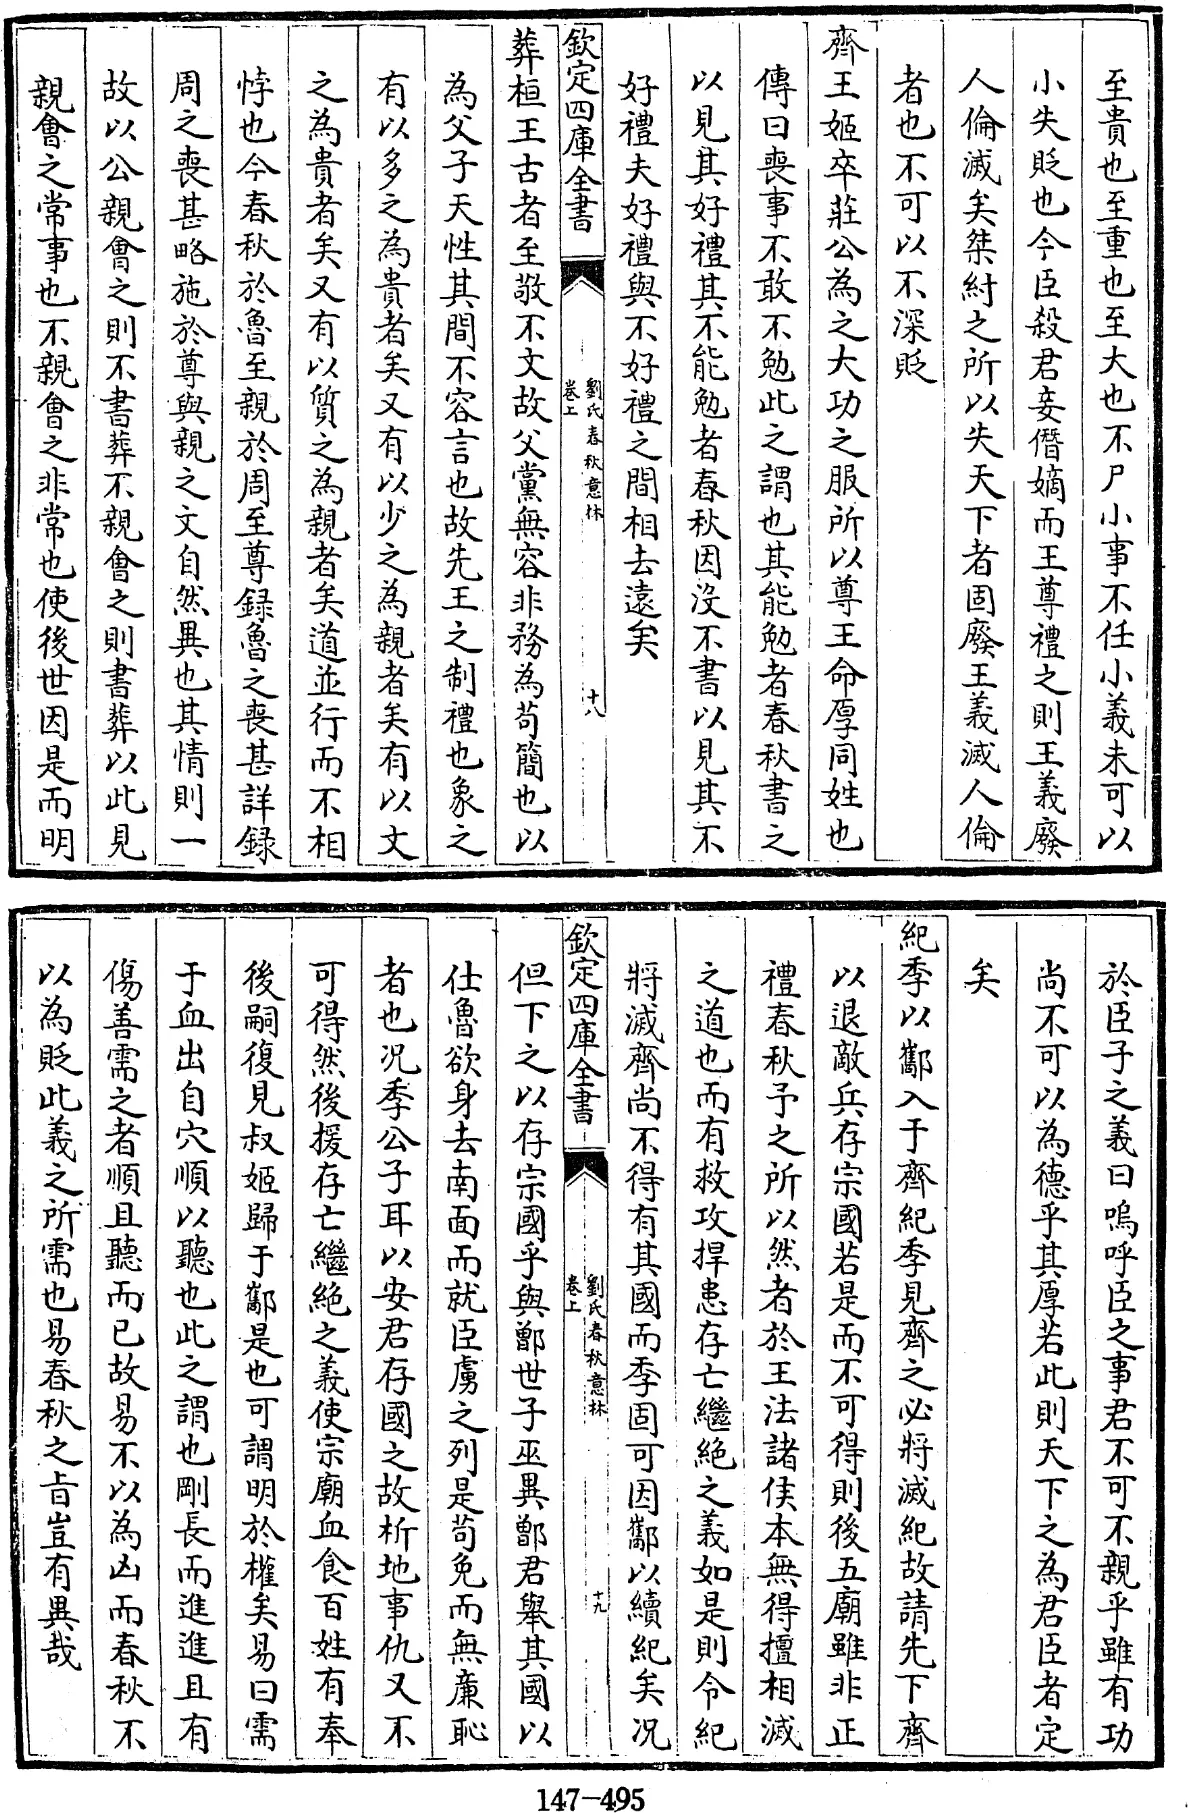 至貴也至重也至大也不尸小事不任小義未可以
小失貶也今臣殺君妾僭嫡而王尊禮之則王義廢
人倫滅矣桀紂之所以失天下者固廢王義滅人倫
者也不可以不深貶
齊王姬卒莊公為之大功之服所以尊王命厚同姓也
傳曰喪事不敢不勉此之謂也其能勉者春秋書之
以見其好禮其不能勉者春秋因沒不書以見其不
好禮夫好禮與不好禮之間相去遠矣
欽定四庫全書
劉氏春秋意林
卷上
十八
葬桓王古者至敬不文故父黨無容非務為苟簡也以
為父子天性其間不容言也故先王之制禮也象之
有以多之為貴者矣又有以少之為親者矣有以文
之為貴者矣又有以質之為親者矣道並行而不相
悖也今春秋於魯至親於周至尊録魯之喪甚詳録
周之喪甚略施於尊與親之文自然異也其情則一
故以公親會之則不書葬不親會之則書葬以此見
親會之常事也不親會之非常也使後世因是而明
於臣子之義曰嗚呼臣之事君不可不親乎雖有功
尚不可以為德乎其厚若此則天下之為君臣者定
矣
紀季以酅入于齊紀季見齊之必將滅紀故請先下齊
以退敵兵存宗國若是而不可得則後五廟雖非正
禮春秋予之所以然者於王法諸侯本無得擅相滅
之道也而有救攻捍患存亡繼絶之義如是則令紀
將滅齊尚不得有其國而季固可因酅以續紀矣况
欽定四庫全書
劉氏春秋意林
卷上
十九
但下之以存宗國乎與鄫世子巫異鄫君舉其國以
仕魯欲身去南面而就臣虜之列是苟免而無亷恥
者也况季公子耳以安君存國之故析地事仇又不
可得然後援存亡繼絶之義使宗廟血食百姓有奉
後嗣復見叔姬歸于酅是也可謂明於權矣易曰需
于血出自穴順以聽也此之謂也剛長而進進且有
傷善需之者順且聽而已故易不以為凶而春秋不
以為貶此義之所需也易春秋之旨豈有異哉
147-495